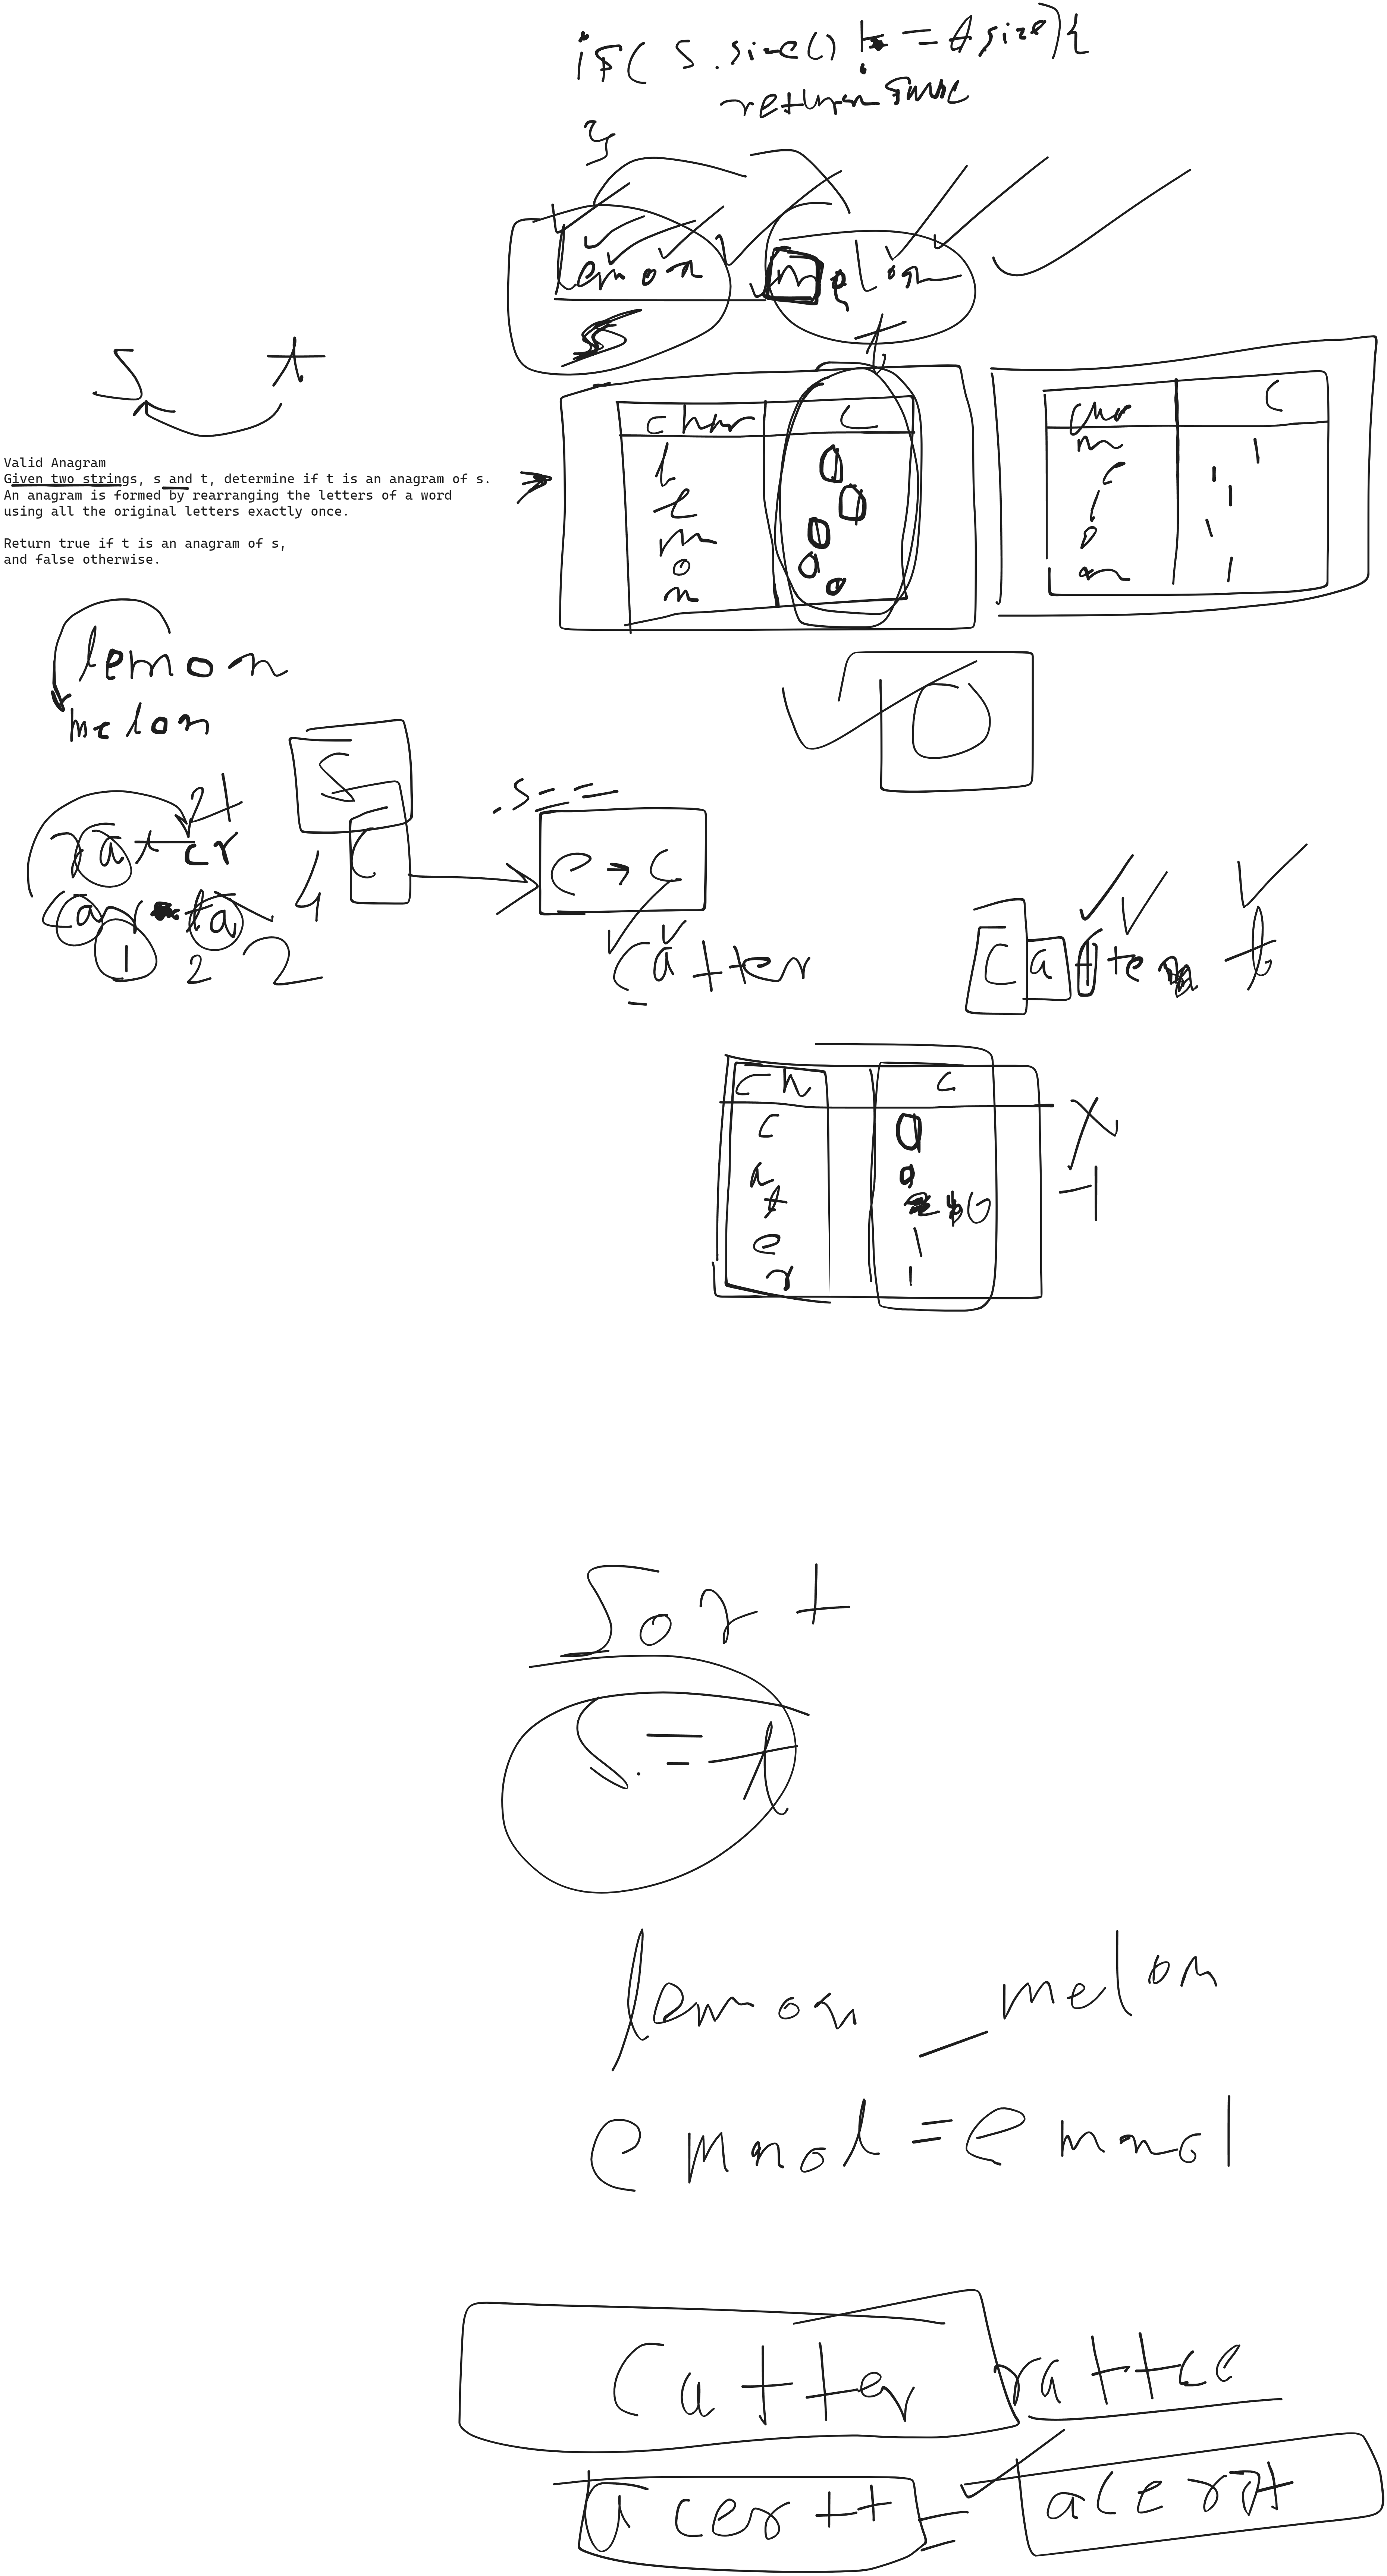 if( s.size() != t size){
return false
}
lemon melon
s t
s t
char c
l 0
e 0
m 0
o 0
n 0
char c
m 1
e 1
l 1
o 1
n 1
Valid Anagram
Given two strings, s and t, determine if t is an anagram of s.
An anagram is formed by rearranging the letters of a word
using all the original letters exactly once.
Return true if t is an anagram of s,
and false otherwise.
0
lemon
melon
s
c
s ==
c → c
1 2 2
catter
ch c
c 0
a 0
t 0
e 1
r 1
-1
Sort
s == t
lemon melon
emnol = emnol
Catter rattce
acertt = acertt